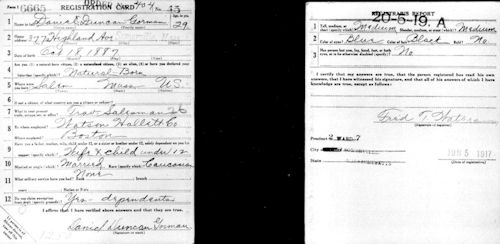 6665 REGISTRATION CARD No. 45
ORDER 404
1 Name in full Daniel Duncan Gorman Age, in yrs. 29
2 Home address 77 Highland Ave
3 Date of birth Oct 18 1887
4 Are you (1) a natural-born citizen, (2) a naturalized citizen, (3) an alien, (4) or have you declared your intention (specify which)?
Natural-Born
5 Where were you born? Salem Mass U.S.
6 If not a citizen, of what country are you a citizen or subject?
7 What is your present trade, occupation, or office? Trav. Salesman
8 By whom employed? Watson Hallett Co
Where employed? Boston
9 Have you a father, mother, wife, child under 12, or a sister or brother under 12, solely dependent on you for support (specify which)? Wife & child under 12
10 Married or single (which)? Married Race (specify which)? Caucasian
11 What military service have you had? Rank None ; branch
years ; Nation or State
12 Do you claim exemption from draft (specify grounds)? Yes - dependents
I affirm that I have verified above answers and that they are true.
Daniel Duncan Gorman
(Signature or mark)
REGISTRARS REPORT
20-5-19. A
1 Tall, medium, or short (specify which)? Medium Slender, medium, or stout (which)? Medium
2 Color of eyes? Blue Color of hair? Black Bald? No
3 Has person lost arm, leg, hand, foot, or both eyes, or is he otherwise disabled (specify)? No
I certify that my answers are true, that the person registered has read his own answers, that I have witnessed his signature, and that all of his answers of which I have knowledge are true, except as follows:
Fred T.
(Signature of registrar)
Precinct 2 WARD 7
City
State
JUN 5 1917
(Date of registration)